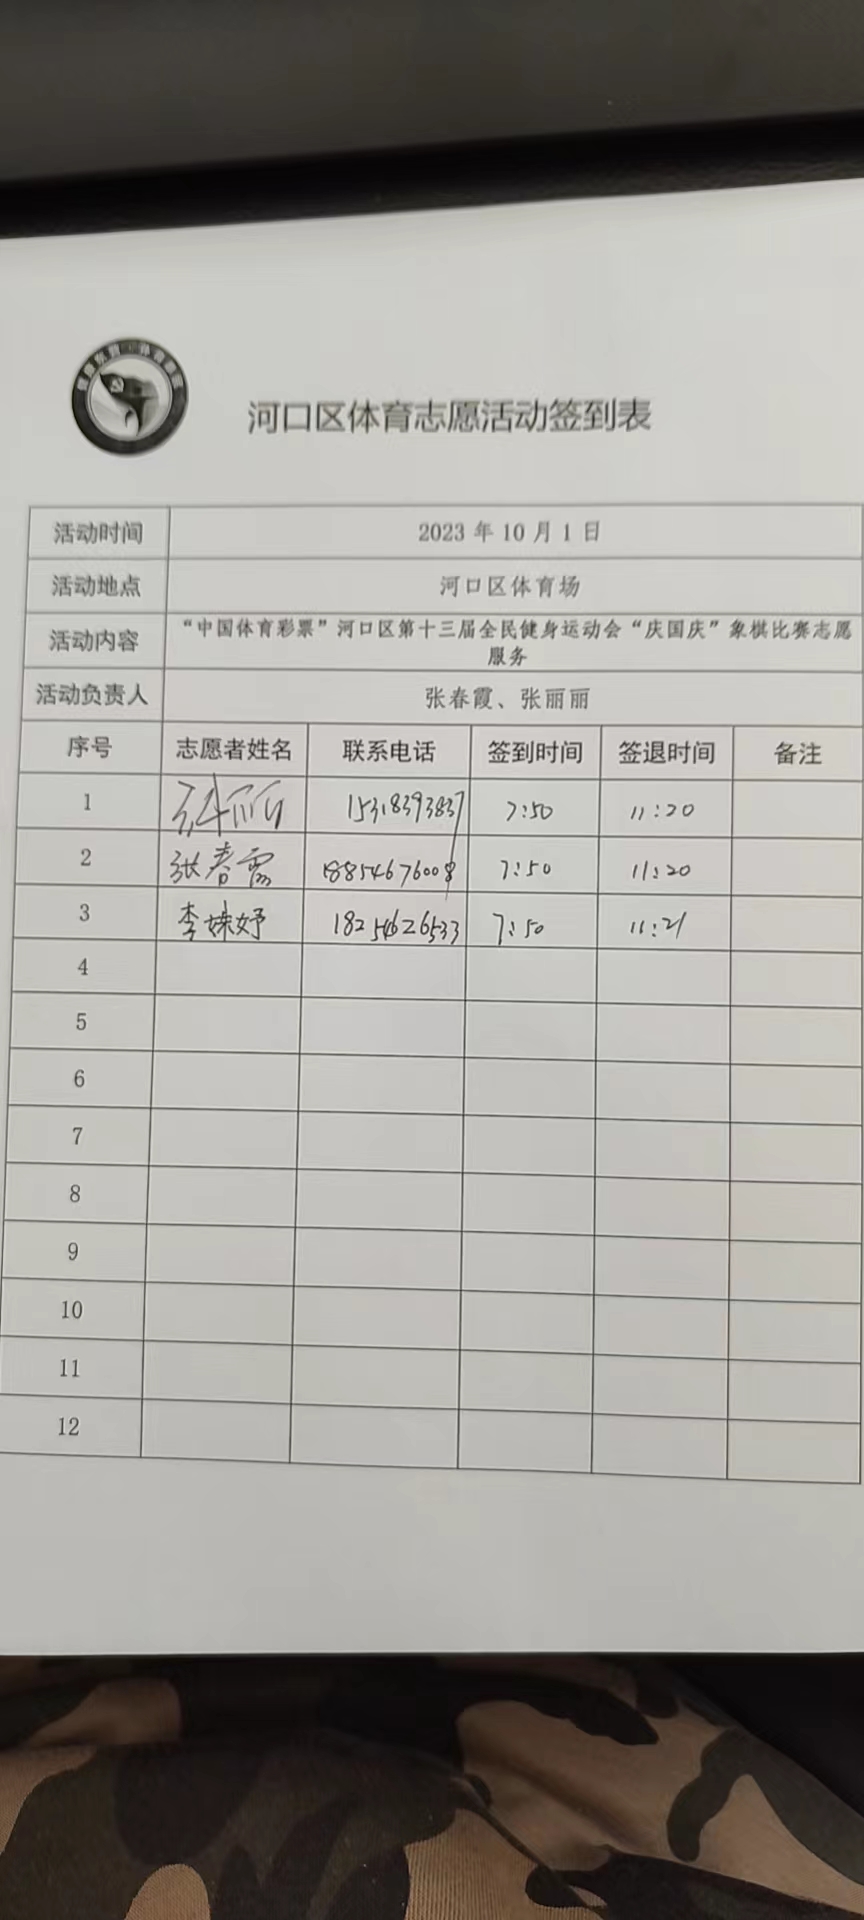 河口区体育志愿活动签到表
活动时间 2023 年 10 月 1 日
活动地点 河口区体育场
活动内容 “中国体育彩票”河口区第十三届全民健身运动会“庆国庆”象棋比赛志愿
服务
活动负责人 张春霞、张丽丽
序号 志愿者姓名 联系电话 签到时间 签退时间 备注
1 张丽丽 15318393837 7:50 11:20
2 张春霞 18854676008 7:50 11:20
3 李姝妤 18254626533 7:50 11:21
4
5
6
7
8
9
10
11
12